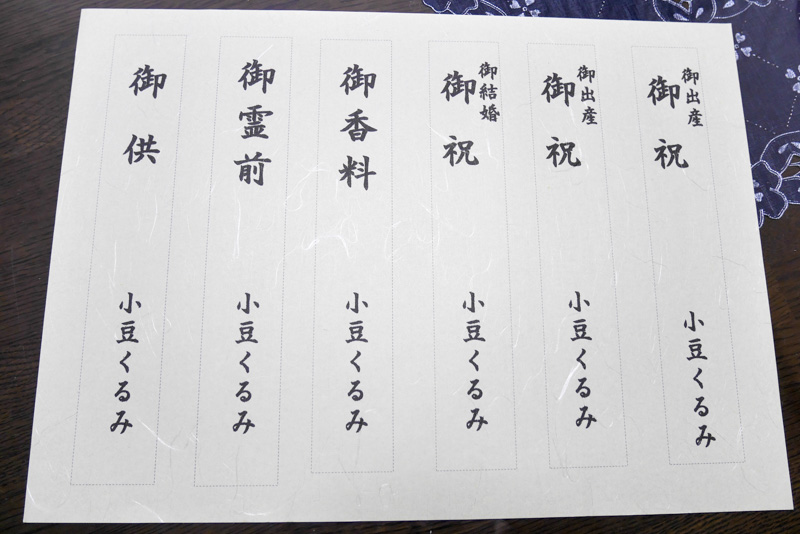 御出産
御祝
小豆くるみ
御出産
御祝
小豆くるみ
御結婚
御祝
小豆くるみ
御香料
小豆くるみ
御霊前
小豆くるみ
御供
小豆くるみ